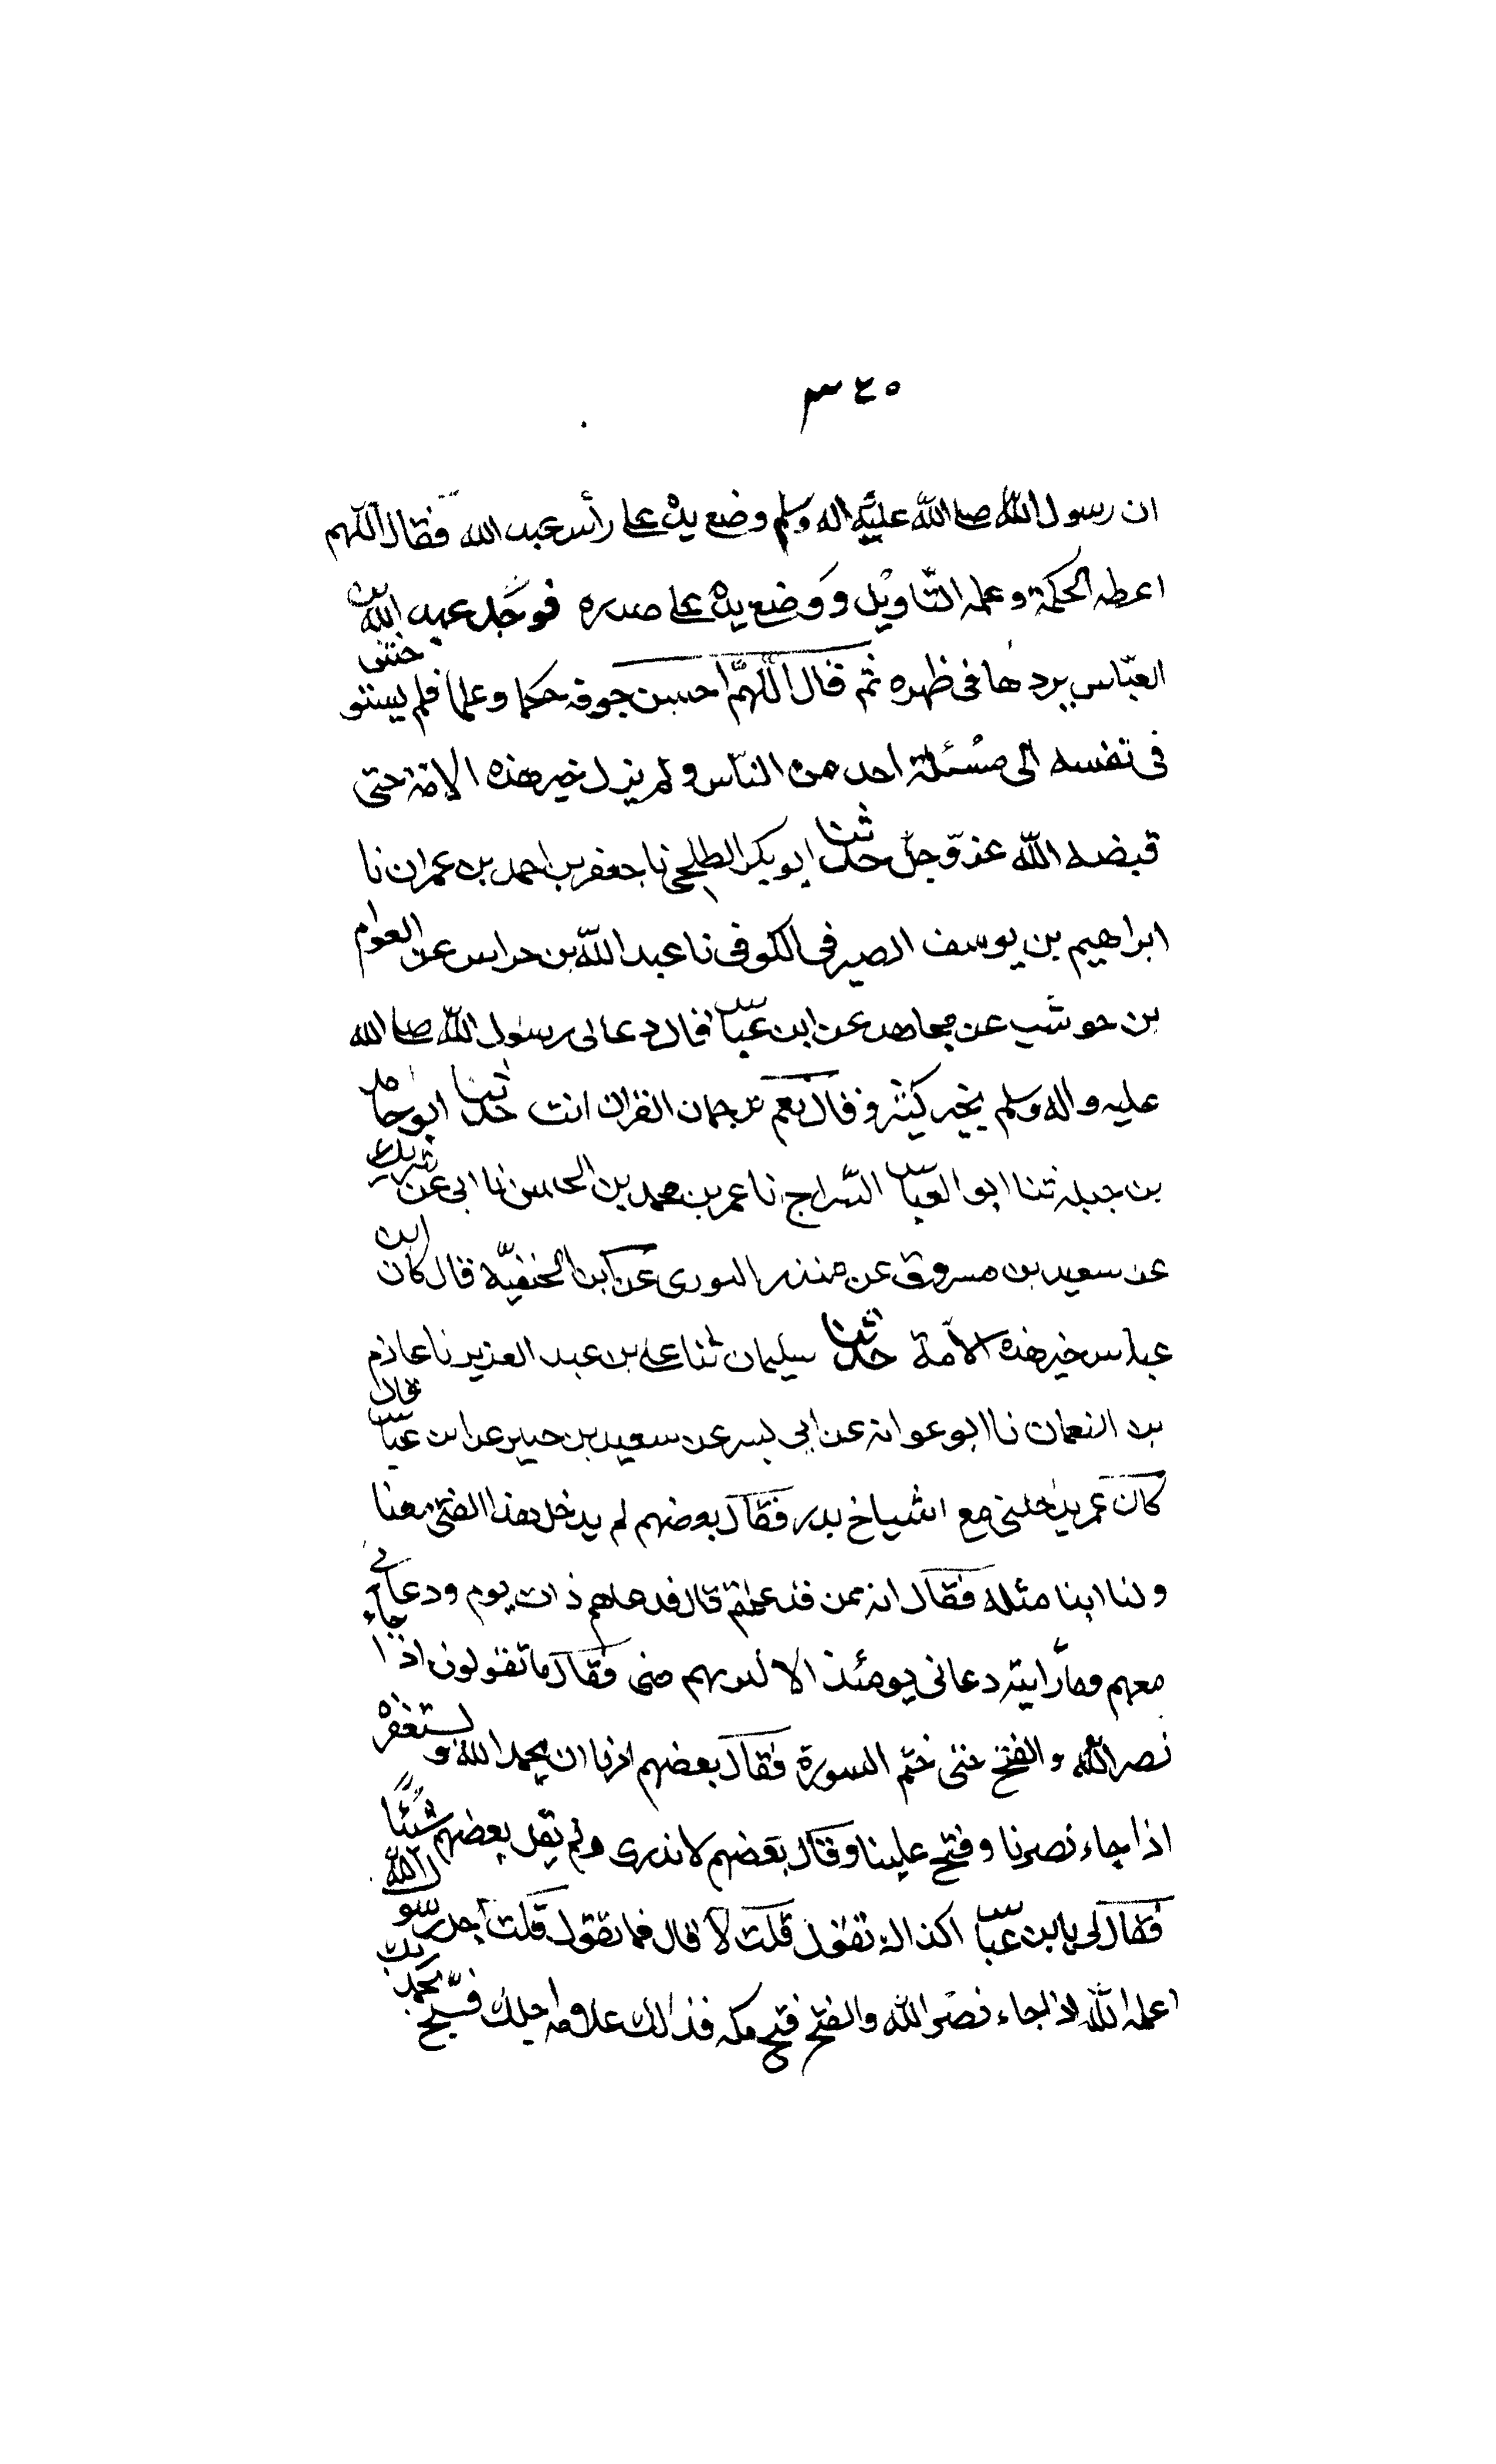 ٣٤٥
ان رسول الله صلى الله عليه واله وسلم وضع يده على رأس عبد الله فقال اللهم
اعطه الحكمة وعلمه التاويل ووضع يده على صدره فوجد عبد الله بن
العباس بردها فى ظهره ثم قال اللهم احسن جوفه حكما وعلما فلم يستوحش
فى نفسه الى مسئلة احد من الناس ولم يزل خير هذه الامة حتى
قبضه الله عز وجل حدثنا ابو بكر الطلحى نا جعفر بن احمد بن عمران نا
ابراهيم بن يوسف الصيرفى الكوفى نا عبد الله بن حراس عن العوام
بن حوشب عن مجاهد عن ابن عباس قال دعا لى رسول الله صلى الله
عليه واله وسلم بخير كثير و قال نعم ترجمان القران انت حدثنا ابو حامد
بن جبلة ثنا ابو العباس السراج نا عمر بن محمد بن الحسن نا ابى عن شريك
عن سعيد بن مسروق عن منذر الثورى عن ابن الحنفية قال كان ابن
عباس خير هذه الامة حدثنا سليمان ثنا على بن عبد العزيز نا عازم
بن النعمان نا ابو عوانة عن ابى بسر عن سعيد بن جبير عن ابن عباس قال
كان عمر يدخلنى مع اشياخ بدر فقال بعضهم لم يدخل هذا الفتى معنا
ولنا ابنا مثله فقال انه ممن قد علمتم قال فدعاهم ذات يوم ودعانى
معهم وما رايته دعانى يومئذ الا ليريهم منى فقال ما تقولون اذا جاء
نصر الله والفتح حتى ختم السورة فقال بعضهم امرنا ان نحمد الله ونستغفره
اذا جاء نصرنا وفتح علينا وقال بعضهم لا ندرى ولم يقل بعضهم شيئا
فقال لى يا ابن عباس اكذالك تقول قلت لا قال فما تقول قلت اجل رسول الله
اعلمه الله اذا جاء نصر الله والفتح فتح مكه فذالك علامة اجلك فسبح بحمد ربك